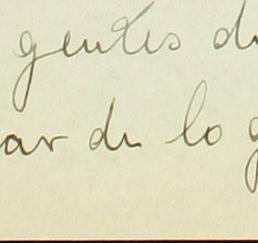 gentes de
ar de lo